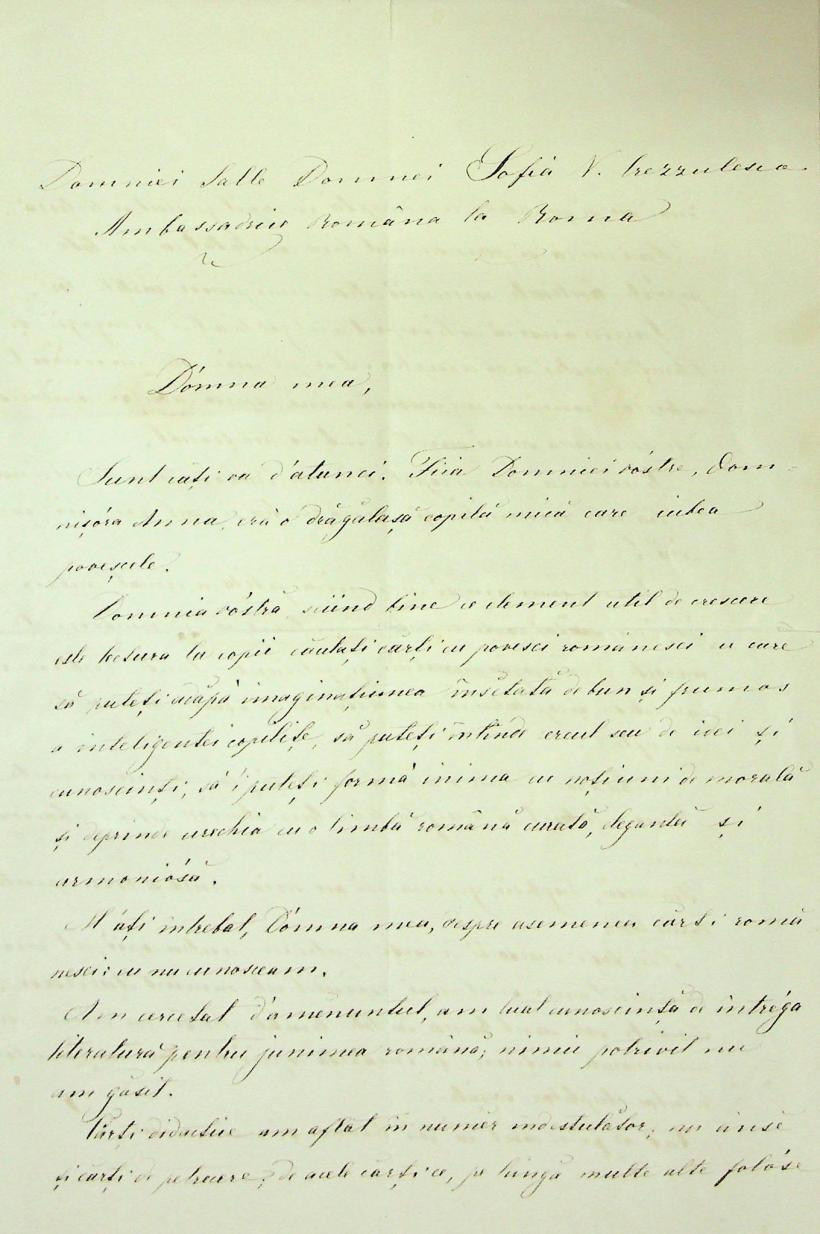 Domniei Salle Domnei Sofia V. Crezzulesco
Ambassadrice Română la Roma
Dómna mea,
Sunt câți-va d'atunci. Fiia Domniei vóstre, Dom-
nișóra Anna, era o drăgălașă copilă mică care iubea
povescele.
Domnia vóstră, sciind bine ce element util de crescere
este lectura la copii căutați cărți cu povesci românesci cu care
să puteți adăpà imaginațiunea însetată de bun și frumos
a inteligentei copilițe, să puteți întinde cercul seu de idei și
cunoscinți, să 'i puteți formà inima cu noțiuni de morală
și deprinde urechia cu o limbă română curată, elegantă și
armoniósă.
M'ați întrebat, Dómna mea, despre asemenea cărți romà
nesci: eu nu cunosceam.
Am cercetat d'amenuntul, am luat cunoscință de intréga
literatură pentru junimea română; nimic potrivit nu
am găsit.
Cărți didactice am aflat în numer indestulător; nu ânse
și cărți de petrecere; de acele cărți ce, pe lângă multe alte folóse